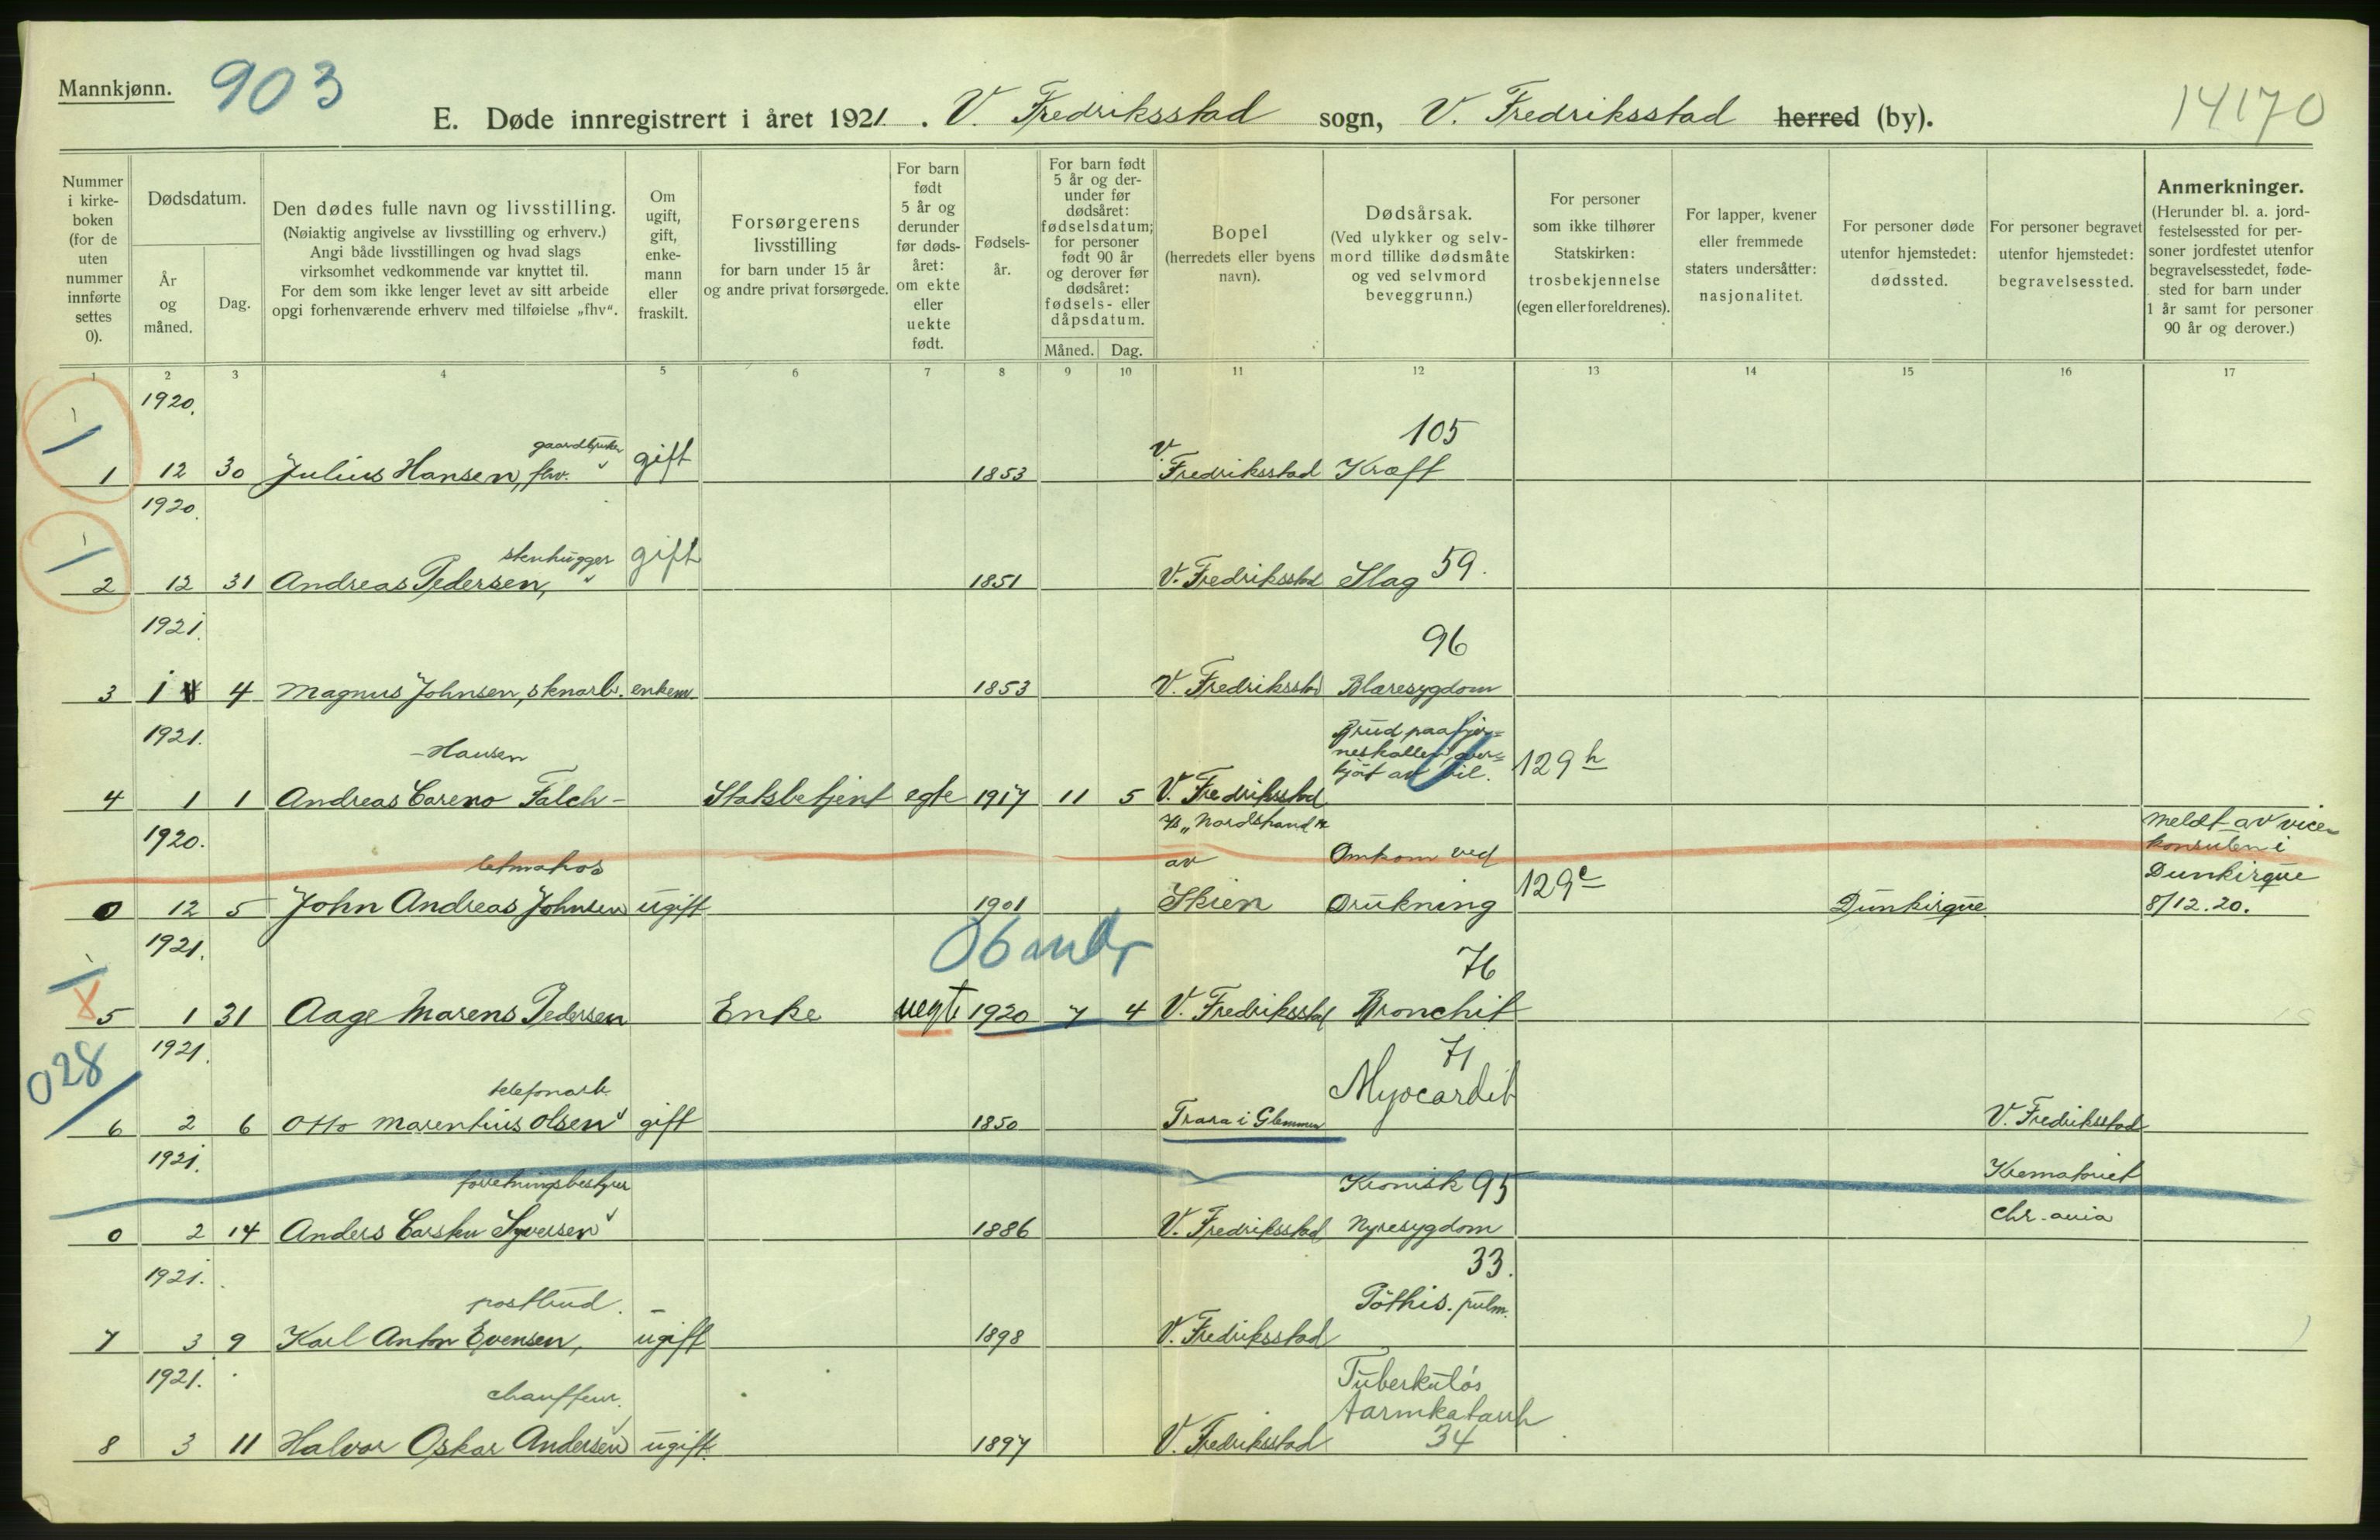 Mannkjønn.
903
E. Døde innregistrert i året 1921. V. Fredriksstad sogn, V. Fredriksstad herred (by).
14170
Nummer i kirke-boken (for de uten nummer innførte settes 0).
Dødsdatum.
År og måned.
Dag.
Den dødes fulle navn og livsstilling.
(Nøiaktig angivelse av livsstilling og erhverv.)
Angi både livsstillingen og hvad slags
virksomhet vedkommende var knyttet til.
For dem som ikke lenger levet av sitt arbeide
opgi forhenværende erhverv med tilføielse „fhv“.
Om ugift, gift, enke-mann eller fraskilt.
Forsørgerens
livsstilling
for barn under 15 år
og andre privat forsørgede.
For barn født 5 år og derunder før døds-året: om ekte eller uekte født.
Fødsels-år.
For barn født 5 år og der-under før dødsåret: fødselsdatum; for personer født 90 år og derover før dødsåret: fødsels- eller dåpsdatum.
Måned. Dag.
Bopel
(herredets eller byens
navn).
Dødsårsak.
(Ved ulykker og selv-
mord tillike dødsmåte
og ved selvmord
beveggrunn.)
For personer
som ikke tilhører
Statskirken:
trosbekjennelse
(egen eller foreldrenes).
For lapper, kvener
eller fremmede
staters undersåtter:
nasjonalitet.
For personer døde
utenfor hjemstedet:
dødssted.
For personer begravet
utenfor hjemstedet:
begravelsessted.
Anmerkninger.
(Herunder bl. a. jord-
festelsessted for per-
soner jordfestet utenfor
begravelsesstedet, føde-
sted for barn under
1 år samt for personer
90 år og derover.)
1 2 3 4 5 6 7 8 9 10 11 12 13 14 15 16 17
1920.
105
gaardbruker
1 12 30 Julius Hansen, fhv. gift 1853 V. Fredriksstad Kræft
1920.
stenhugger
2 12 31 Andreas Pedersen, gift 1851 V. Fredriksstad Slag 59.
1921.
96
3 1 4 Magnus Johnsen, sknarb. enkem 1853 V. Fredriksstad Blæresygdom
1921.
-Hansen
Brud paa hjer=
neskallen, over=
kjørt av bil. 129 h
4 1 1 Andreas Careno Falch- Statsbetjent egte 1917 11 5 V. Fredriksstad
1920.
letmatros
„Nordstrand“
av
Omkom ved
Meldt av vice-
konsulen i
Dunkirque
0 12 5 John Andreas Johnsen ugift 1901 Skien Drukning 129 c Dunkirque 8/12.20.
1921.
06 mdr
76
5 1 31 Aage Marens Pedersen Enke uegte 1920 7 4 V. Fredriksstad Bronchit
028
1921.
71
telefonarb.
6 2 6 Otto Marentius Olsen gift 1850 Trara i Glemmen Myocardit V. Fredriksstad
1921.
forretningsbestyrer
Kronisk 95
Krematoriet
0 2 14 Anders Carsten Syversen 1886 V. Fredriksstad Nyresygdom Chr.ania
1921.
33.
postbud.
Pöthis. pulm.
7 3 9 Karl Anton Evensen, ugift 1898 V. Fredriksstad
1921.
chauffeur.
Tuberkuløs
tarmkatarrh
8 3 11 Halvor Oskar Andersen ugift 1897 V. Fredriksstad 34